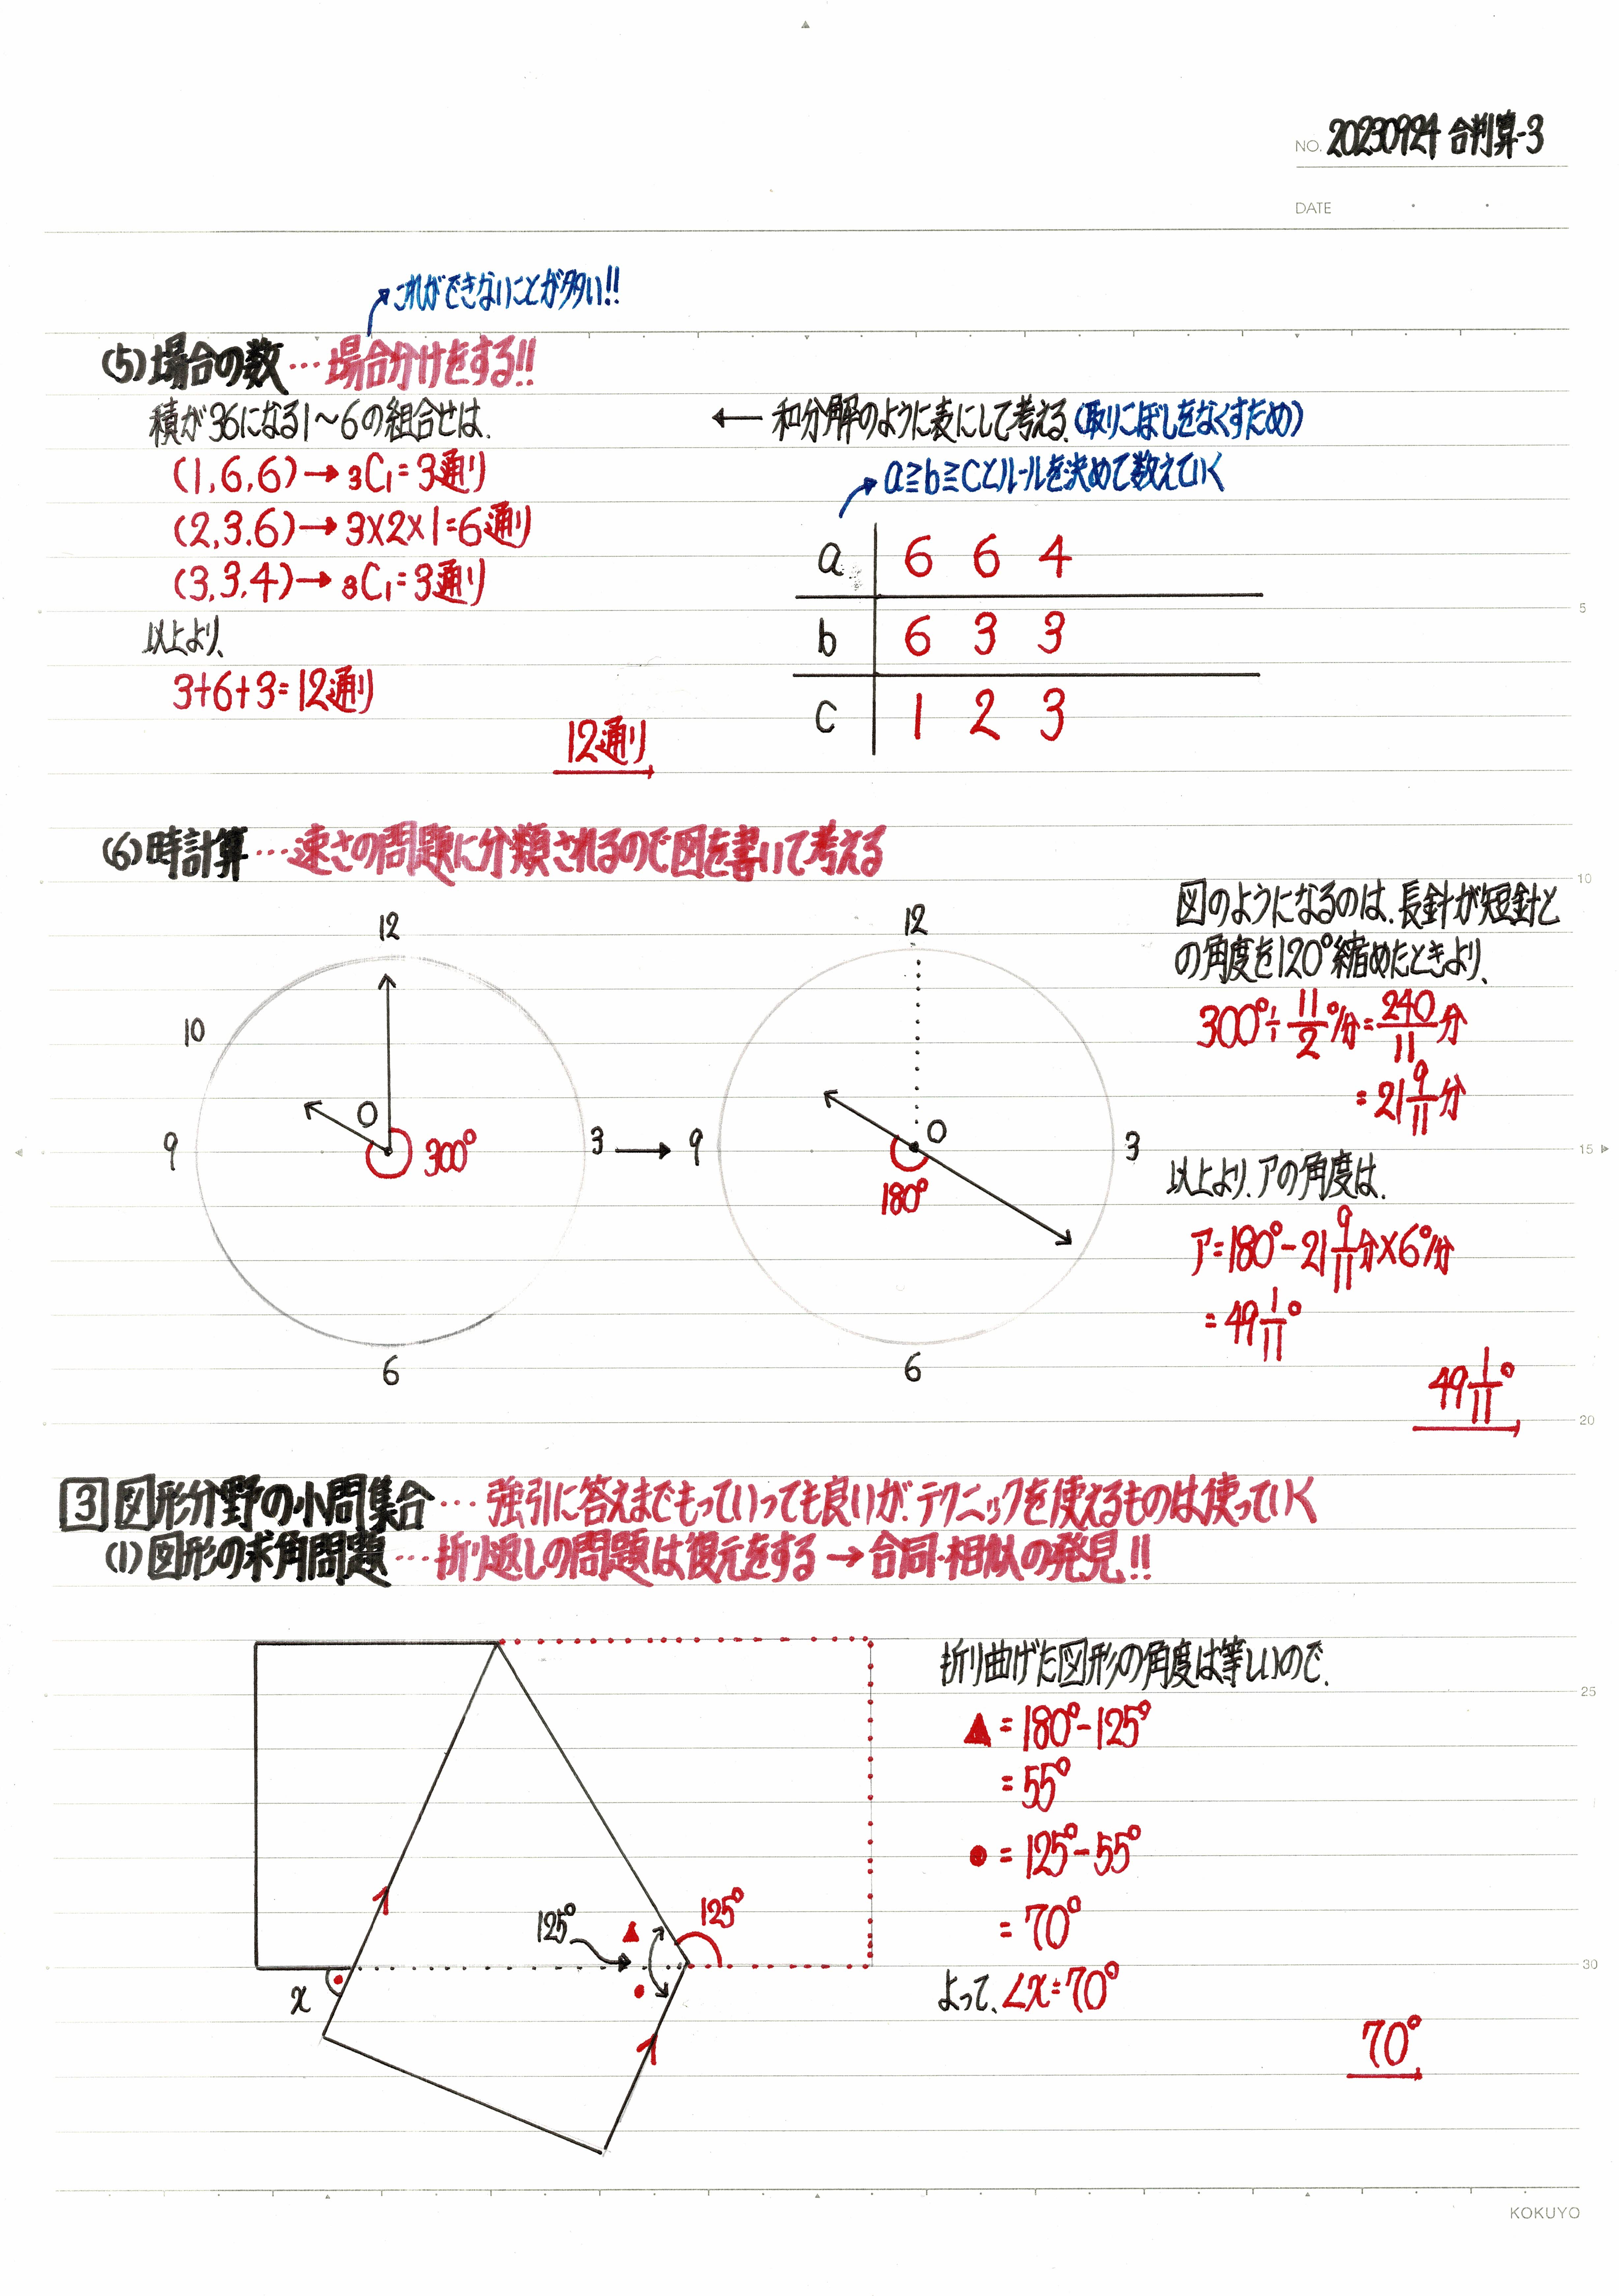 NO. 20230924 合判算-3
DATE
これができないことが多い!!
(5)場合の数…場合分けをする!!
積が36になる1～6の組合せは、
(1,6,6)→₃C₁=3通り
(2,3,6)→3×2×1=6通り
(3,3,4)→₃C₁=3通り
以上より、
3+6+3=12通り
12通り
←和分解のように表にして考える(取りこぼしをなくすため)
a≧b≧cとルールを決めて数えていく
a 6 6 4
b 6 3 3
c 1 2 3
5
(6)時計算…速さの問題に分類されるので図を書いて考える
10
12
10
9
O
300°
3
6
→
12
9
O
180°
3
6
図のようになるのは、長針が短針と
の角度を120°縮めたときより、
300°÷11/2°/分=240/11分
=21 9/11分
15
以上より、アの角度は、
ア=180°-21 9/11分×6°/分
=49 1/11°
49 1/11°
20
3 図形分野の小問集合…強引に答えまでもっていっても良いが、テクニックを使えるものは使っていく
(1)図形の求角問題…折り返しの問題は復元をする→合同・相似の発見!!
125°
125°
x
折り曲げた図形の角度は等しいので、
25
▲=180°-125°
=55°
●=125°-55°
=70°
よって、∠x=70°
30
70°
KOKUYO